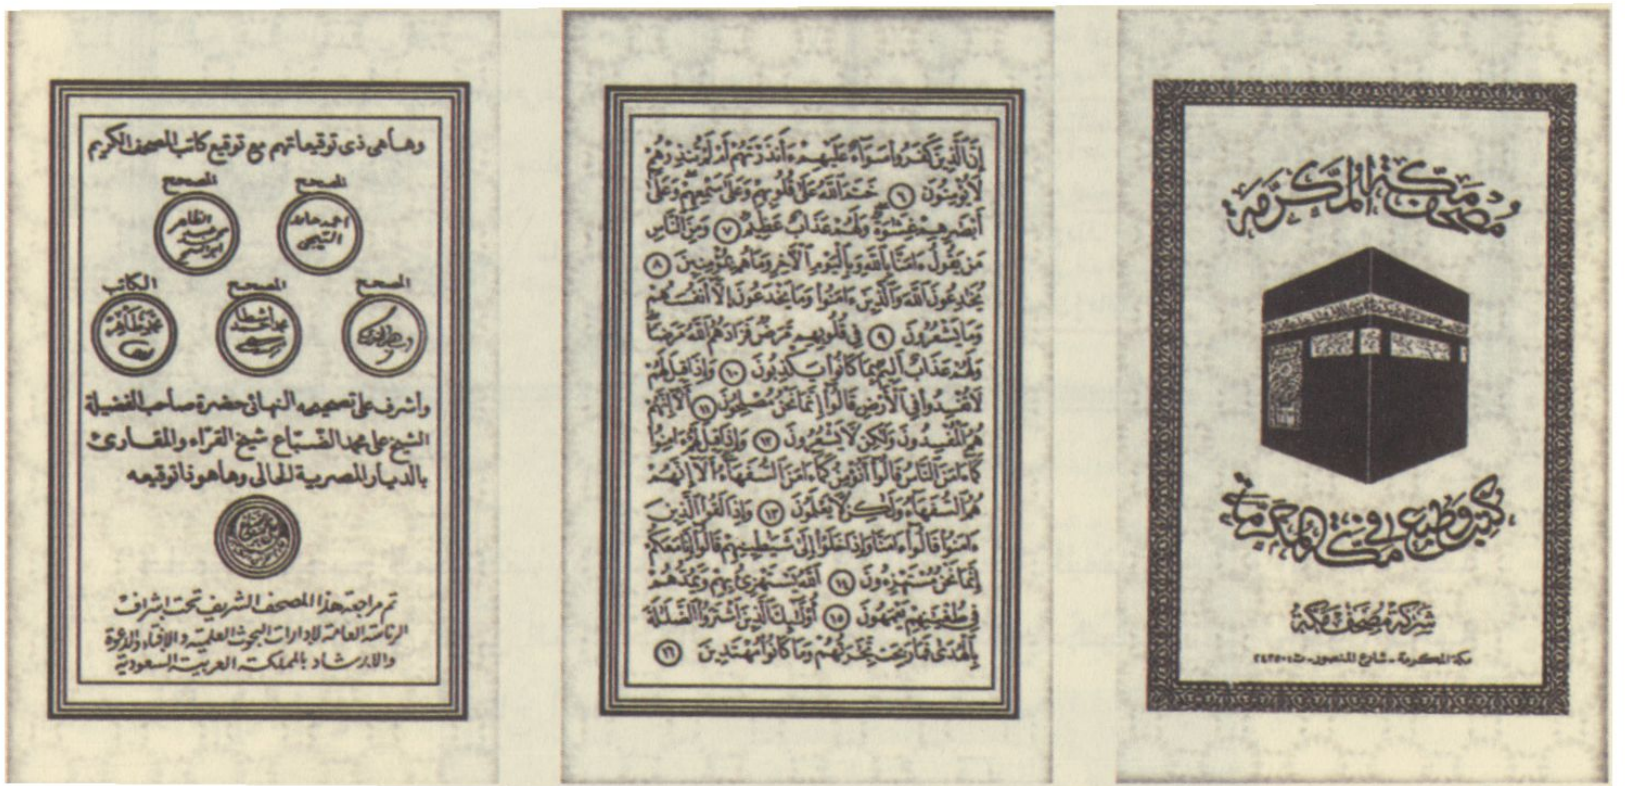 مصحف مكة المكرمة
كتب وطبع في مكة المكرمة
شركة مصحف مكة
مكة المكرمة - شارع المنصور - ت
إِنَّ ٱلَّذِينَ كَفَرُوا۟ سَوَآءٌ عَلَيْهِمْ ءَأَنذَرْتَهُمْ أَمْ لَمْ تُنذِرْهُمْ
لَا يُؤْمِنُونَ ٦ خَتَمَ ٱللَّهُ عَلَىٰ قُلُوبِهِمْ وَعَلَىٰ سَمْعِهِمْ وَعَلَىٰٓ
أَبْصَٰرِهِمْ غِشَٰوَةٌ وَلَهُمْ عَذَابٌ عَظِيمٌ ٧ وَمِنَ ٱلنَّاسِ
مَن يَقُولُ ءَامَنَّا بِٱللَّهِ وَبِٱلْيَوْمِ ٱلْءَاخِرِ وَمَا هُم بِمُؤْمِنِينَ ٨
يُخَٰدِعُونَ ٱللَّهَ وَٱلَّذِينَ ءَامَنُوا۟ وَمَا يَخْدَعُونَ إِلَّآ أَنفُسَهُمْ
وَمَا يَشْعُرُونَ ٩ فِى قُلُوبِهِم مَّرَضٌ فَزَادَهُمُ ٱللَّهُ مَرَضًا
وَلَهُمْ عَذَابٌ أَلِيمٌۢ بِمَا كَانُوا۟ يَكْذِبُونَ ١٠ وَإِذَا قِيلَ لَهُمْ
لَا تُفْسِدُوا۟ فِى ٱلْأَرْضِ قَالُوٓا۟ إِنَّمَا نَحْنُ مُصْلِحُونَ ١١ أَلَآ إِنَّهُمْ
هُمُ ٱلْمُفْسِدُونَ وَلَٰكِن لَّا يَشْعُرُونَ ١٢ وَإِذَا قِيلَ لَهُمْ ءَامِنُوا۟
كَمَآ ءَامَنَ ٱلنَّاسُ قَالُوٓا۟ أَنُؤْمِنُ كَمَآ ءَامَنَ ٱلسُّفَهَآءُ أَلَآ إِنَّهُمْ
هُمُ ٱلسُّفَهَآءُ وَلَٰكِن لَّا يَعْلَمُونَ ١٣ وَإِذَا لَقُوا۟ ٱلَّذِينَ
ءَامَنُوا۟ قَالُوٓا۟ ءَامَنَّا وَإِذَا خَلَوْا۟ إِلَىٰ شَيَٰطِينِهِمْ قَالُوٓا۟ إِنَّا مَعَكُمْ
إِنَّمَا نَحْنُ مُسْتَهْزِءُونَ ١٤ ٱللَّهُ يَسْتَهْزِئُ بِهِمْ وَيَمُدُّهُمْ
فِى طُغْيَٰنِهِمْ يَعْمَهُونَ ١٥ أُو۟لَٰٓئِكَ ٱلَّذِينَ ٱشْتَرَوُا۟ ٱلضَّلَٰلَةَ
بِٱلْهُدَىٰ فَمَا رَبِحَت تِّجَٰرَتُهُمْ وَمَا كَانُوا۟ مُهْتَدِينَ ١٦
وهاهى ذى توقيعاتهم مع توقيع كاتب المصحف الكريم
المصحح
المصحح
احمد حامد التيجى
المصحح
المصحح
الكاتب
محمد طاهر
وأشرف على تصحيحه النهائى حضرة صاحب الفضيلة
الشيخ على محمد الضباع شيخ القراء والمقارئ
بالديار المصرية الحالى وهاهوذا توقيعه
تم مراجعة هذا المصحف الشريف تحت إشراف
الرئاسة العامة لإدارات البحوث العلمية والافتاء والدعوة
والارشاد بالمملكة العربية السعودية